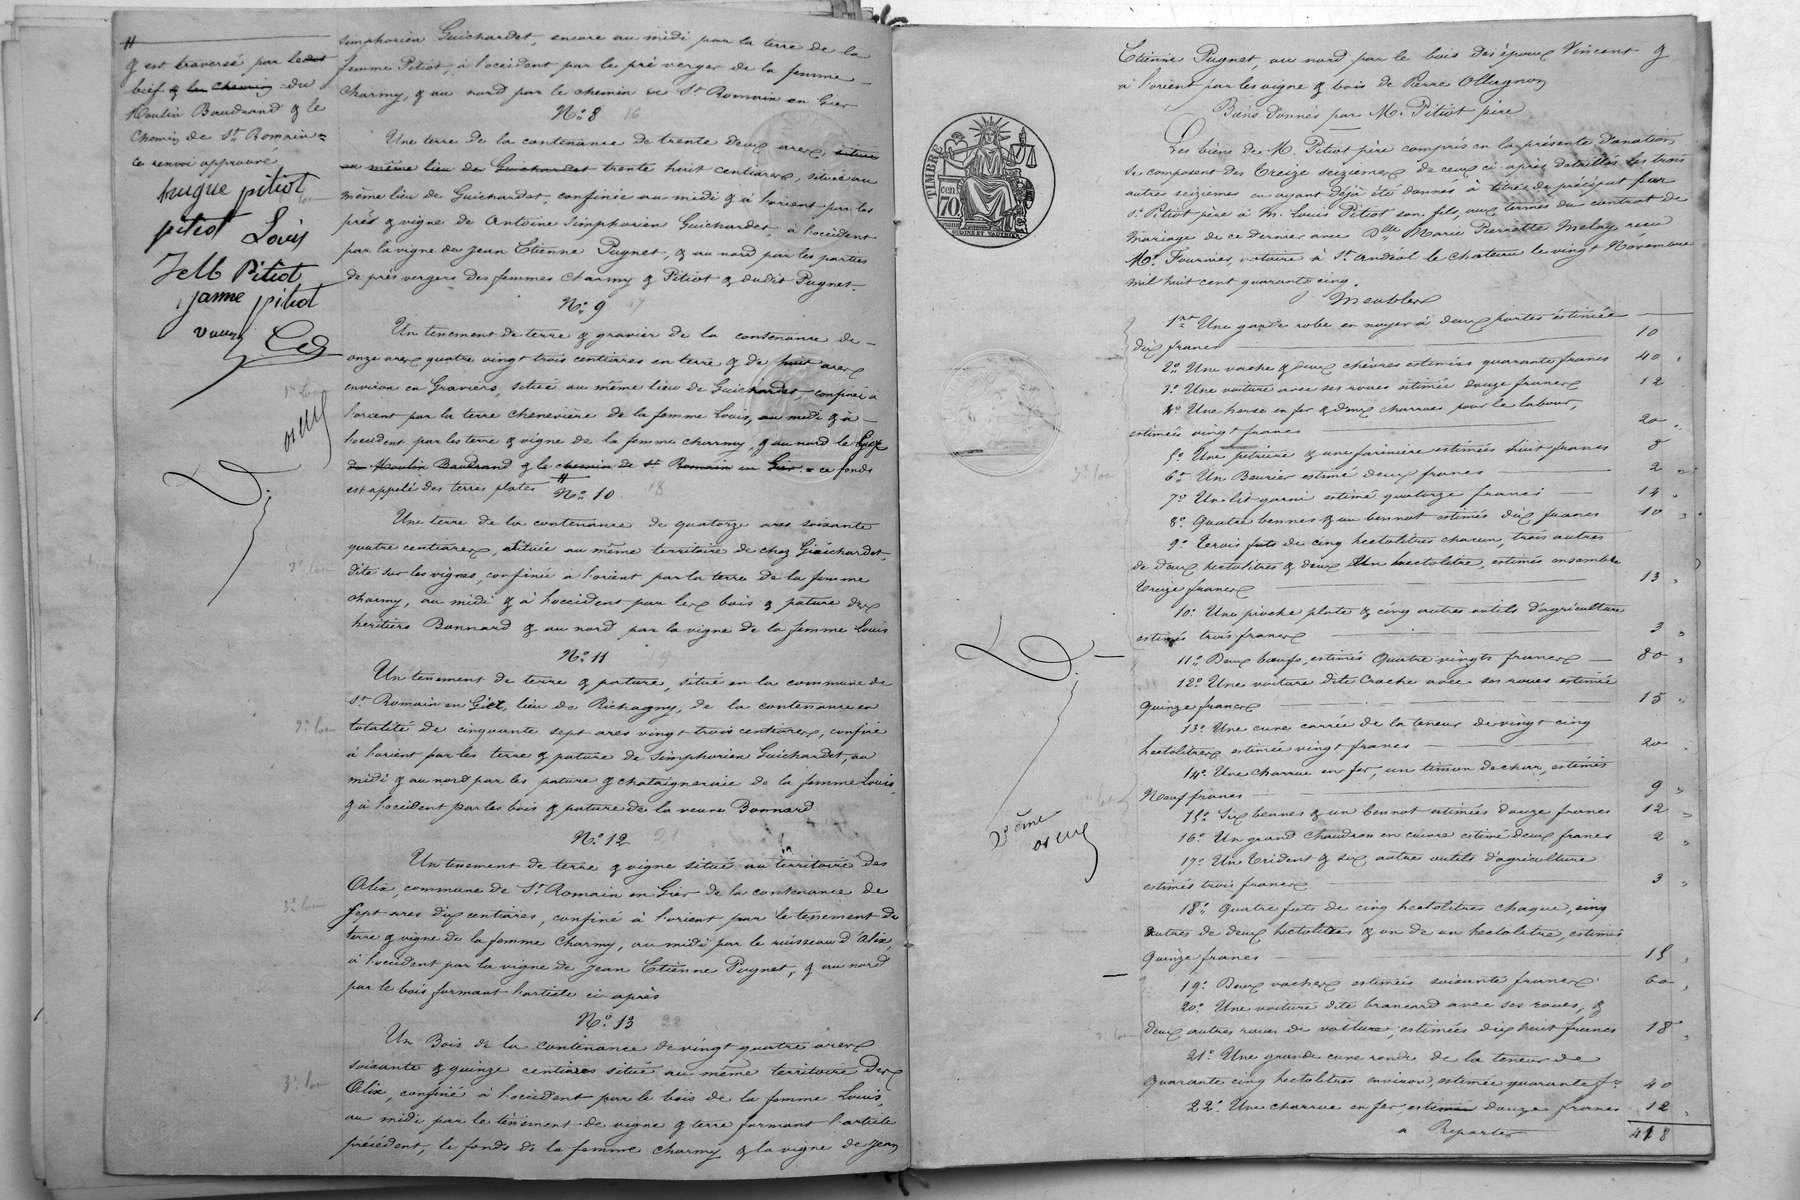 H
& est traversé par ledit
bief & le chemin du
Moulin Baudrand & le
Chemin de St Romain =
Ce renvoi approuvé
hugue pitiot
pitiot Louis
Pitiot
janne pitiot
Simphorien Guichardet, encore au midi par la terre de la
femme Pitiot, à l'occident par le pré verger de la femme
Charmy, & au nord par le chemin de St Romain en Gier
No. 8 16
Une terre de la contenance de trente deux ares, située
au même lieu de Guichardet trente huit centiares, située au
même lieu de Guichardet, confinée au midi & à l'orient par les
prés & vigne de Antoine Simphorien Guichardet, à l'occident
par la vigne de Jean Etienne Pugnet, & au nord par les parties
de prés vergers des femmes Charmy & Pitiot & dudit Pugnet.
No. 9 17
Un tenement de terre & gravier de la contenance de
onze ares quatre vingt trois centiares en terre & de huit ares
environ en Graviers, situé au même lieu de Guichardet, confiné à
1er lot
l'orient par la terre chenevière de la femme Louis, au midi & à
l'occident par les terre & vigne de la femme charmy, & au nord le bief
du Moulin Baudrand & le chemin de St Romain en Gier = ce fonds
est appelé des terres plates H
No. 10 18
Une terre de la contenance de quatorze ares soixante
quatre centiares, située au même territoire de chez Guichardet,
2e lot
dite sur les vignes, confinée à l'orient par la terre de la femme
charmy, au midi & à l'occident par les bois & pature des
heritiers Bonnard & au nord par la vigne de la femme Louis
No. 11 19
Un tenement de terre & pature, situé en la commune de
St Romain en Gier, lieu de Richagny, de la contenance en
totalité de cinquante sept ares vingt trois centiares, confiné
à l'orient par les terre & pature de Simphorien Guichardet, au
midi & au nord par les pature & chataigneraie de la femme Louis,
& à l'occident par les bois & pature de la veuve Bonnard
No. 12 21
Un tenement de terre & vigne situé au territoire des
Alix, commune de St Romain en Gier de la contenance de
3e lot
sept ares dix centiares, confiné à l'orient par le tenement de
terre & vigne de la femme Charmy, au midi par le ruisseau d'Alix,
à l'occident par la vigne de Jean Etienne Pugnet, & au nord
par le bois formant l'article ci après
No. 13 22
Un Bois de la contenance de vingt quatre ares
soixante & quinze centiares situé au même territoire des
3e lot
Alix, confiné à l'occident par le bois de la femme Louis,
au midi par le tenement de vigne & terre formant l'article
précédent, le fonds de la femme charmy & la vigne de Jean
Etienne Pugnet, au nord par le bois des époux Vincent &
à l'orient par les vigne & bois de Pierre Ollagnon
Biens donnés par M. Pitiot père
TIMBRE
cen
70
Les biens de M. Pitiot père compris en la présente donation
se composent des treize seizièmes de ceux ci après détaillés les trois
autres seizièmes en ayant déjà été donnés à titre de préciput par
St Pitiot père à M. Louis Pitiot son fils, aux termes du contrat de
mariage de ce dernier avec Dlle Marie Pierrette Melay, reçu
Me. Fournier, notaire à St Andéol le chateau le vingt Novembre
mil huit cent quarante cinq.
Meubles
1ent Une garde robe en noyer à deux portes estimée
dix francs 10
2o. Une vache & deux chèvres estimées quarante francs 40
3o. Une voiture avec ses roues estimée douze francs 12
4o. Une herse en fer & deux charrues pour le labour,
estimées vingt francs 20
5o. Une petrière & une farinière estimées huit francs 8
6o. Un Beurier estimé deux francs 2
7o. Un lit garni estimé quatorze francs 14
8o. Quatre bennes & un bennot estimés dix francs 10
9o. Trois futs de cinq hectolitres chacun, trois autres
de deux hectolitres & deux d'un hectolitre, estimés ensemble
treize francs 13
10o. Une pioche plate & cinq autres outils d'agriculture
estimés trois francs 3
11o. Deux bœufs, estimés Quatre vingts francs 80
12o. Une voiture dite Crache avec ses roues estimée
quinze francs 15
13o. Une cuve carrée de la teneur de vingt cinq
hectolitres estimée vingt francs 20
14o. Une charrue en fer, un timon de char, estimés
Neuf francs 9
15o. Six bennes & un bennot estimées douze francs 12
2ème
16o. Un grand Chaudron en cuivre estimé deux francs 2
17o. Un Trident & six autres outils d'agriculture
estimés trois francs 3
18o. Quatre futs de cinq hectolitre chaque, cinq
autres de deux hectolitres & un de un hectolitre, estimés
Quinze francs 15
19o. Deux vaches estimées soixante francs 60
20o. Une voiture dite brancard avec ses roues, &
deux autres roues de voiture, estimées dix huit francs 18
21o. Une grande cuve ronde de la teneur de
Quarante cinq hectolitres environ, estimée quarante f. 40
22o. Une charrue en fer, estimée douze francs 12
a Reporter 418